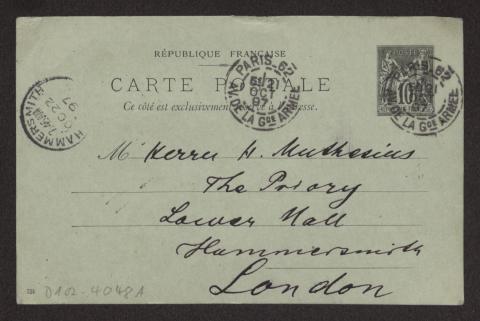 RÉPUBLIQUE FRANÇAISE
CARTE POSTALE
Ce côté est exclusivement réservé à l'adresse.
PARIS 62
OCT
97
AV. DE LA Gde ARMÉE
POSTES
10
PARIS 62
97
AV. DE LA Gde ARMÉE
HAMMERSMITH
OC 22
97
Mr Herrn H. Muthesius
The Priory
Lower Mall
Hammersmith
London
D102-4048A